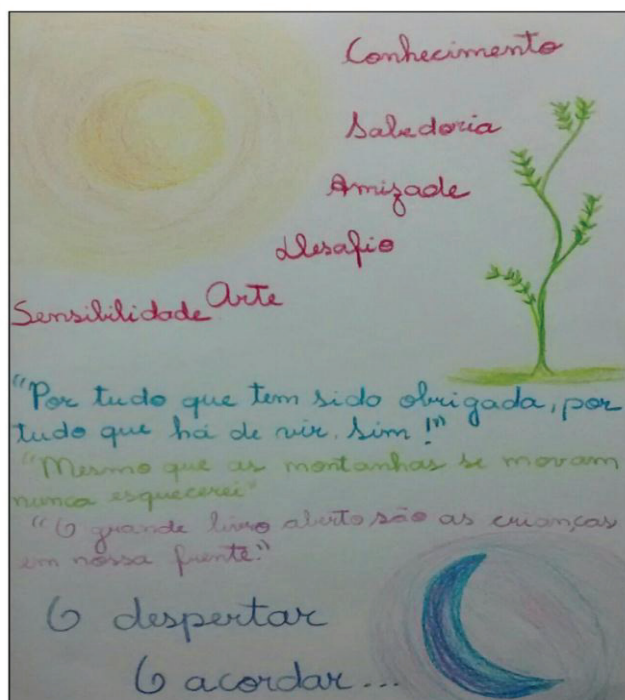 Conhecimento
Sabedoria
Amizade
Desafio
Arte
Sensibilidade
"Por tudo que tem sido obrigada, por
tudo que há de vir. Sim!"
"Mesmo que as montanhas se movam
nunca esquecerei"
"O grande livro aberto são as crianças
em nossa frente."
O despertar
O acordar...